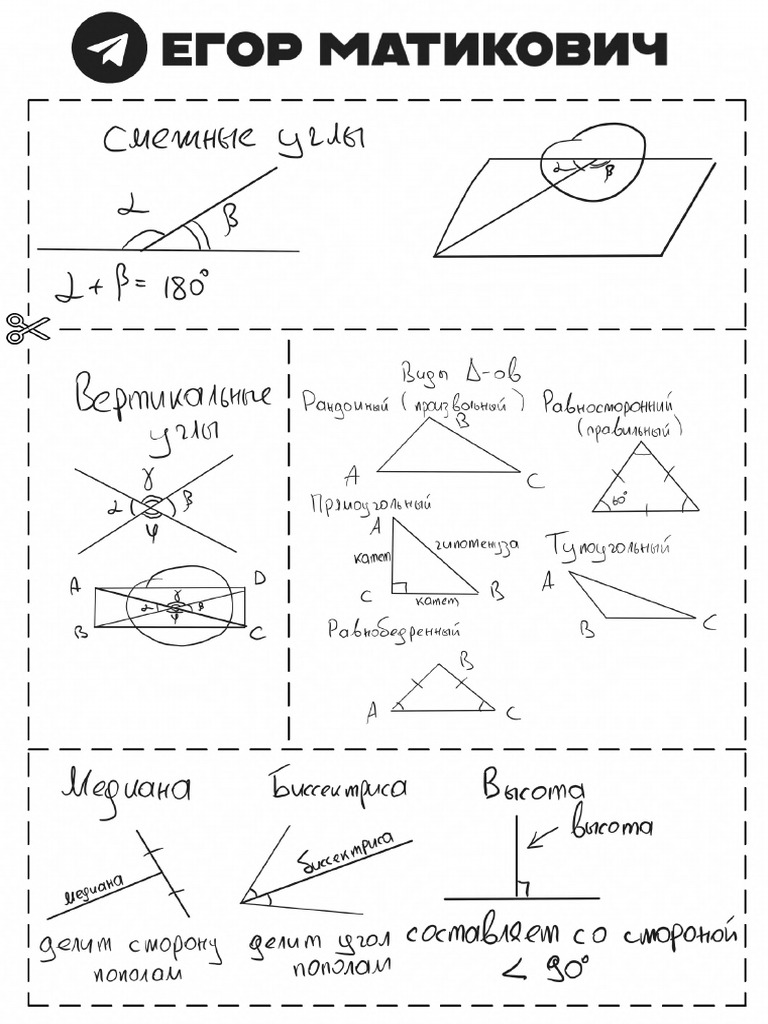 ЕГОР МАТИКОВИЧ
Смежные углы
α β
α β
α + β = 180°
Вертикальные
углы
γ
α β
φ
A D
γ
α β
φ
B C
Виды Δ-ов
Рандомный (произвольный)
B
A C
Равносторонний
(правильный)
60°
Прямоугольный
A
катет гипотенуза
C B
катет
Тупоугольный
A
B C
Равнобедренный
B
A C
Медиана
медиана
делит сторону
пополам
Биссектриса
биссектриса
делит угол
пополам
Высота
высота
составляет со стороной
< 90°